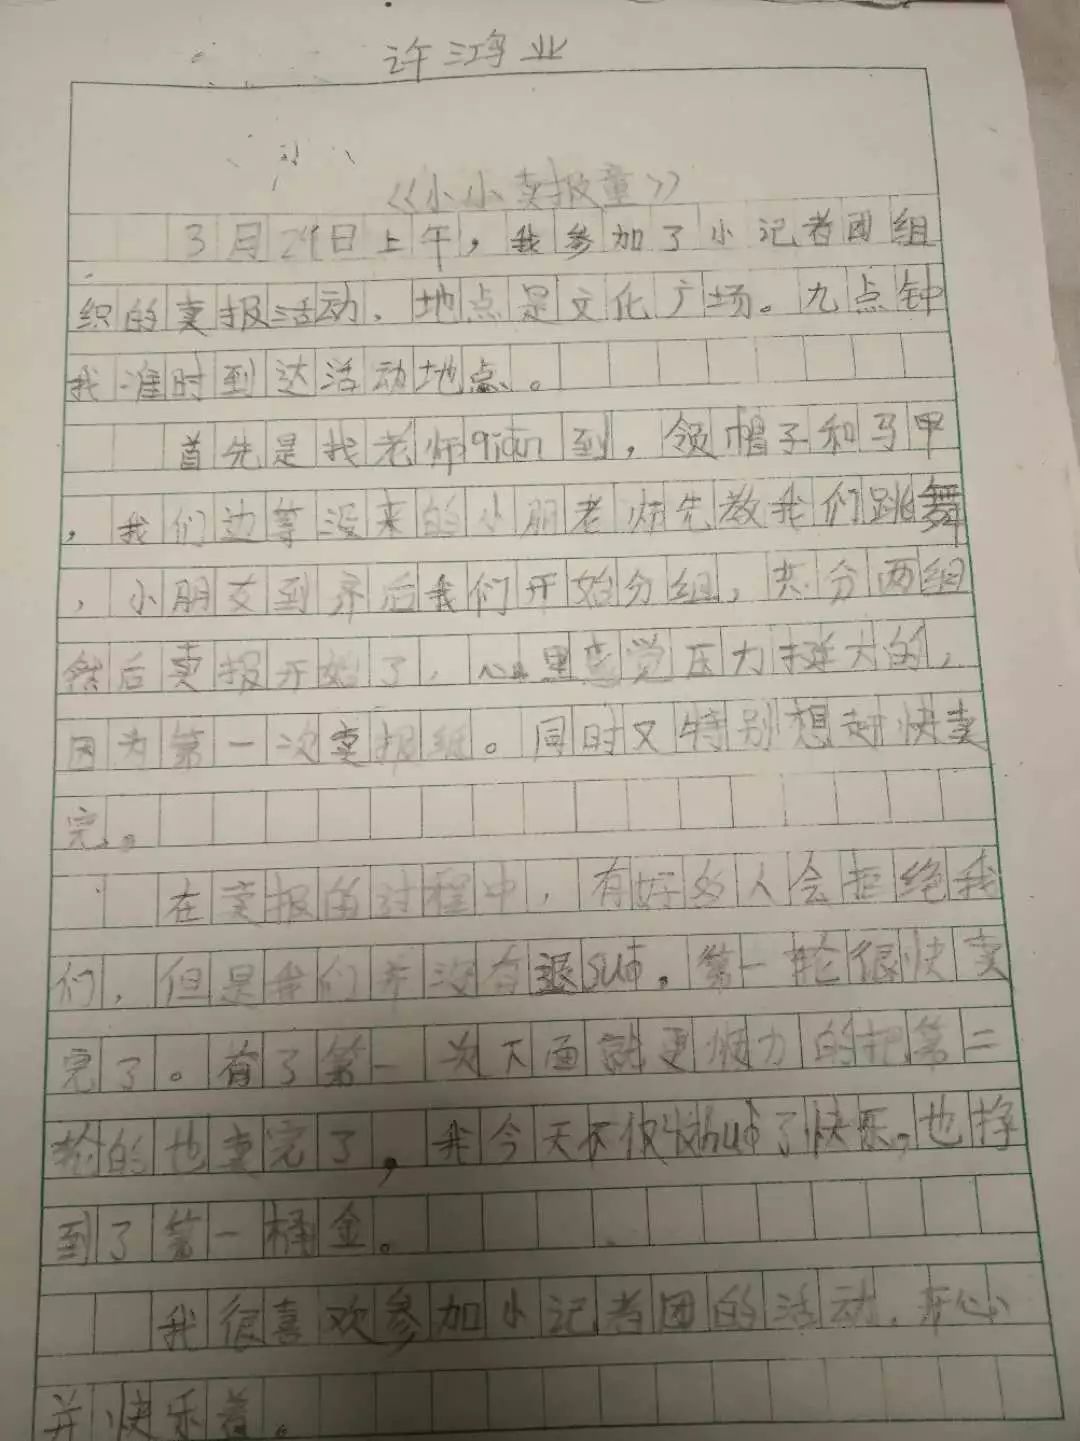 许鸿业
《小小卖报童》
3月29日上午，我参加了小记者团组
织的卖报活动，地点是文化广场。九点钟
我准时到达活动地点。
首先是找老师qiān到，领帽子和马甲
，我们边等没来的小朋老师先教我们跳舞
，小朋友到齐后我们开始分组，共分两组
然后卖报开始了，心里感觉压力挺大的，
因为第一次卖报纸。同时又特别想赶快卖
完。
在卖报的过程中，有好多人会拒绝我
们，但是我们并没有退suō。第一轮很快卖
完了。有了第一次下面就更倾力的把第二
轮的也卖完了，我今天不仅收huò了快乐，也挣
到了第一桶金。
我很喜欢参加小记者团的活动，开心
并快乐着。